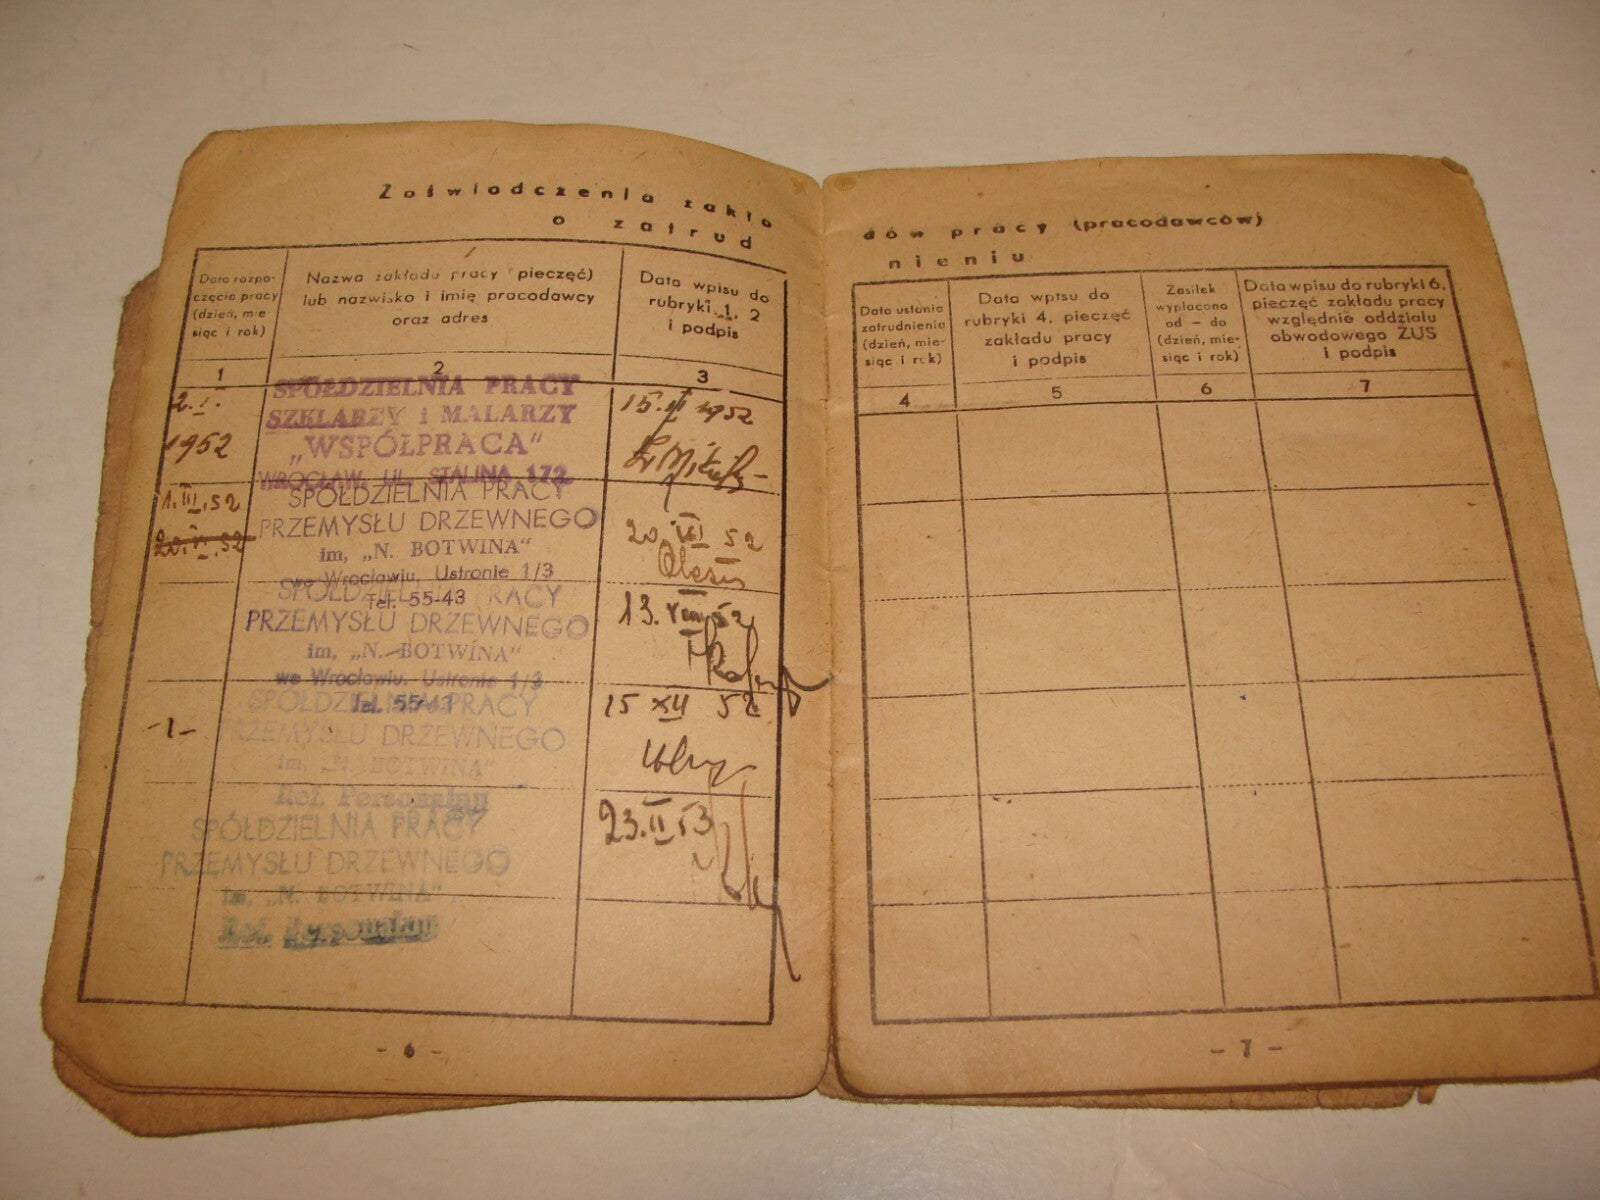 Zaświadczenia zakła
o zatrud
Data rozpo-
częcia pracy
(dzień, mie-
siąc i rok)
Nazwa zakładu pracy (pieczęć)
lub nazwisko i imię pracodawcy
oraz adres
Data wpisu do
rubryki 1, 2
i podpis
1
2
3
2.I.
1952
SPÓŁDZIELNIA PRACY
SZKLARZY i MALARZY
„WSPÓŁPRACA"
WROCŁAW, UL. STALINA 172
15. II 1952
1.III.52
20.VI.52
SPÓŁDZIELNIA PRACY
PRZEMYSŁU DRZEWNEGO
im. „N. BOTWINA"
we Wrocławiu, Ustronie 1/3
Tel. 55-43
20. VI 52
SPÓŁDZIELNIA PRACY
PRZEMYSŁU DRZEWNEGO
im. „N. BOTWINA"
we Wrocławiu, Ustronie 1/3
Tel. 55-43
13. VIII 52
-1-
SPÓŁDZIELNIA PRACY
PRZEMYSŁU DRZEWNEGO
im. „N. BOTWINA"
Ref. Personalny
15 XII 52
SPÓŁDZIELNIA PRACY
PRZEMYSŁU DRZEWNEGO
im. „N. BOTWINA"
Ref. Personalny
23.II 53
- 6 -
dów pracy (pracodawców)
nieniu
Data ustania
zatrudnienia
(dzień, mie-
siąc i rok)
Data wpisu do
rubryki 4, pieczęć
zakładu pracy
i podpis
Zasiłek
wypłacono
od – do
(dzień, mie-
siąc i rok)
Data wpisu do rubryki 6,
pieczęć zakładu pracy
względnie oddziału
obwodowego ZUS
i podpis
4
5
6
7
- 7 -